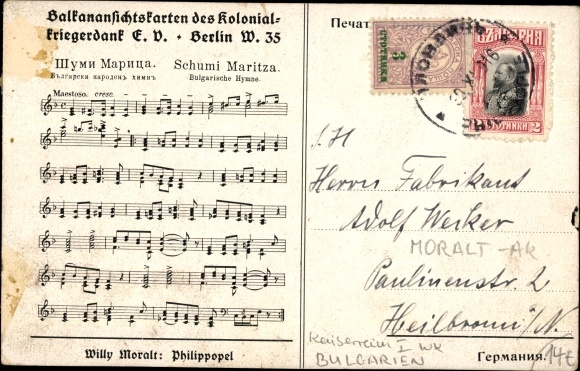 Balkanansichtskarten des Kolonial-
kriegerdank E. V. • Berlin W. 35
Шуми Марица.
Български народенъ химнъ.
Schumi Maritza.
Bulgarische Hymne.
Maestoso. cresc.
Willy Moralt: Philippopel
Печат
3
СТОТИНКИ
БЪЛГАРИЯ
СТОТИНКИ 2
S. H
Herrn Fabrikant
Adolf Werker
MORALT-AK
Paulinenstr. 2
Heilbronn i/N.
Kaiserreim I WK
BULGARIEN
Германия.
14€